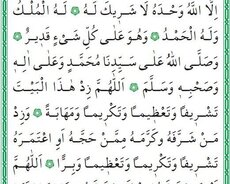 اِلَّا اللّٰهُ وَحْدَهُ لَا شَرٖيكَ لَهُ ۞ لَهُ الْمُلْكُ
وَلَهُ الْحَمْدُ ۞ وَهُوَ عَلٰى كُلِّ شَیْءٍ قَدٖيرٌ ۞
وَصَلَّى اللّٰهُ عَلٰى سَيِّدِنَا مُحَمَّدٍ وَعَلٰى اٰلِهٖ
وَصَحْبِهٖ وَسَلَّمَ ۞ اَللّٰهُمَّ زِدْ هٰذَا الْبَيْتَ
تَشْرٖيفًا وَتَعْظٖيمًا وَتَكْرٖيمًا وَمَهَابَةً ۞ وَزِدْ
مَنْ شَرَّفَهُ وَكَرَّمَهُ مِمَّنْ حَجَّهُ اَوِ اعْتَمَرَهُ
تَشْرٖيفًا وَتَكْرٖيمًا وَتَعْظٖيمًا وَبِرًّا ۞ اَللّٰهُمَّ